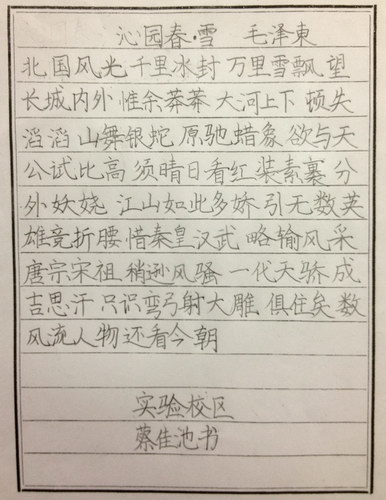 沁园春·雪 毛泽東
北国风光 千里冰封 万里雪飘 望
长城内外 惟余莽莽 大河上下 顿失
滔滔 山舞银蛇 原驰蜡象 欲与天
公试比高 须晴日 看红装素裹 分
外妖娆 江山如此多娇 引无数英
雄竞折腰 惜秦皇汉武 略输风采
唐宗宋祖 稍逊风骚 一代天骄 成
吉思汗 只识弯弓射大雕 俱住矣 数
风流人物 还看今朝
实验校区
蔡佳池书